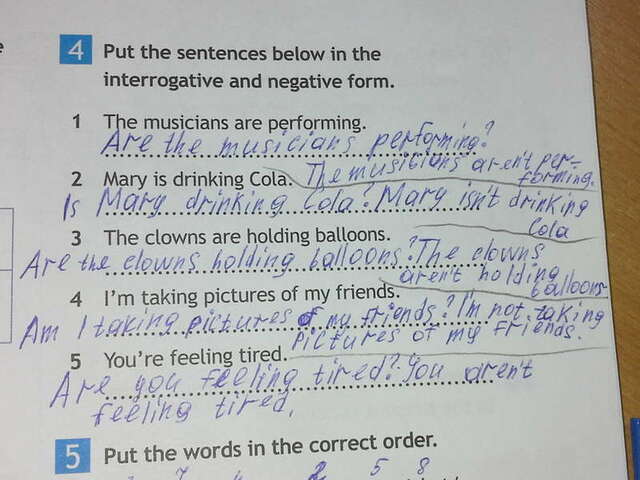 4 Put the sentences below in the
interrogative and negative form.
1 The musicians are performing.
Are the musicians performing?
The musicians aren't per-
forming.
2 Mary is drinking Cola.
Is Mary drinking Cola? Mary isn't drinking
Cola
3 The clowns are holding balloons.
Are the clowns holding balloons? The clowns
aren't holding
balloons
4 I'm taking pictures of my friends.
Am I taking pictures of my friends? I'm not taking
pictures of my friends.
5 You're feeling tired.
Are you feeling tired? You aren't
feeling tired.
5 Put the words in the correct order.
5 8